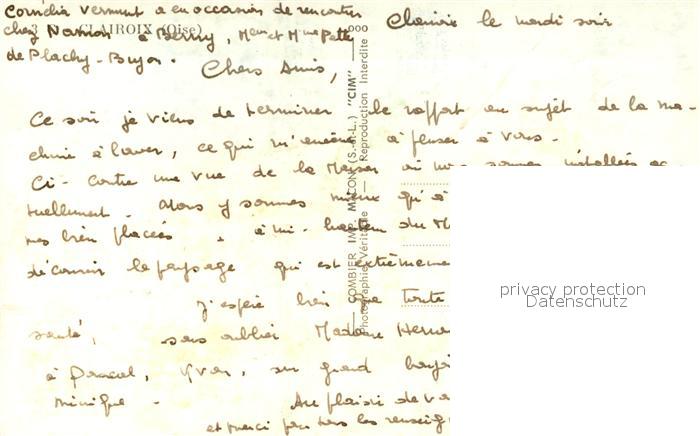 Cornélia Vermunt a eu occasion de rencontrer
chez Norman à Berny, Mr et Mme Petit
de Plachy-Buyon.
3 CLAIROIX (Oise)
le mardi soir
Chers Amis,
Ce soir je viens de terminer le rapport au sujet de la ma-
chine à laver, ce qui m'amène à penser à vous.
Ci-contre une vue de la Maison où nous sommes installées ac
tuellement. Alors y sommes mieux qu'à
très bien placées, à mi-hauteur du M
découvrir le paysage qui est extrêmeme
J'espère bien que toute
santé, sans oublier Madame
à Pascal, Yvon, un grand
minique - Au plaisir de v
et merci pour tous les renseig
COMBIER IMP. MACON (S.-&-L.) "CIM"
Photographie Véritable — Reproduction Interdite
privacy protection
Datenschutz